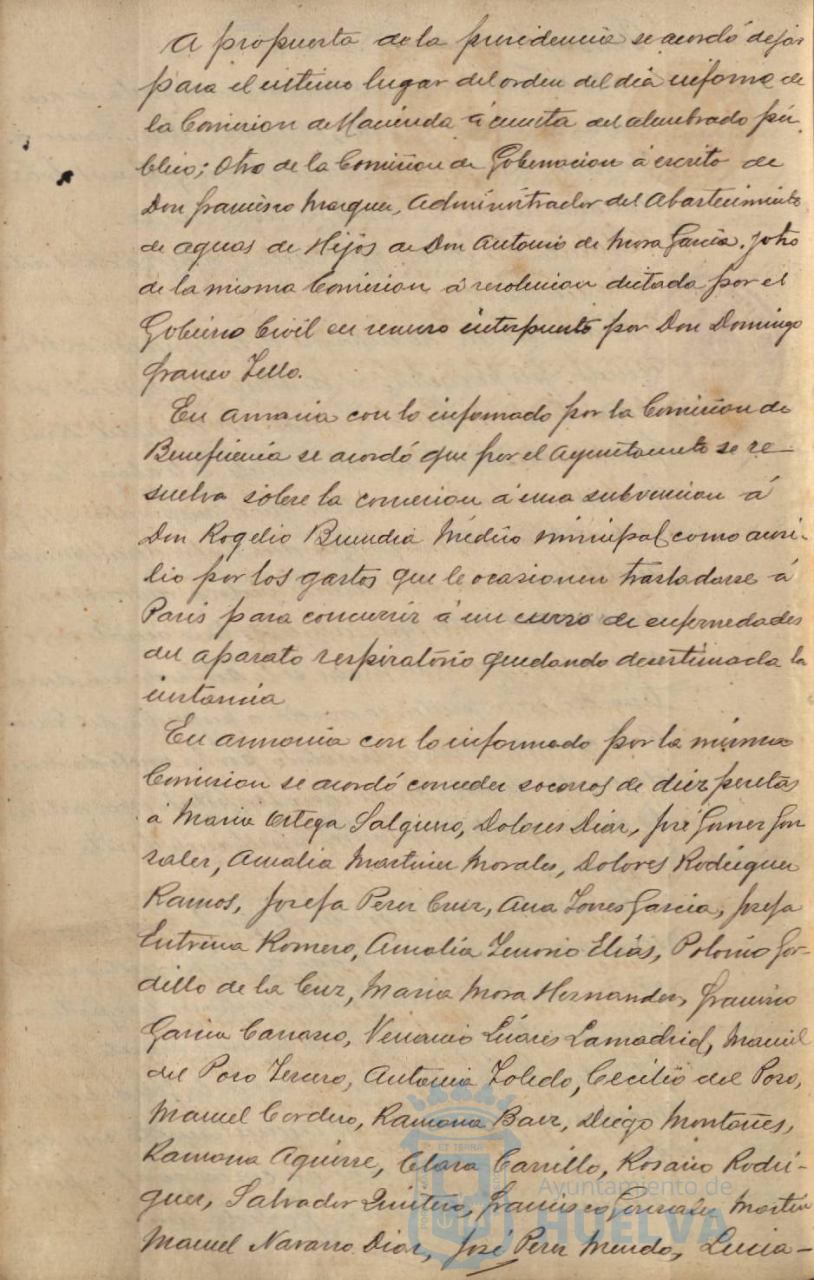 A propuesta de la presidencia se acordó dejar
para el ultimo lugar del orden del dia informe de
la Comision de Hacienda á cuenta del alumbrado pú
blico; Otro de la Comision de Gobernacion á escrito de
Don Francisco Marquez, Administrador del Abastecimiento
de aguas de Hijos de Don Antonio de Mora Garcia. y otro
de la misma Comision á resolucion dictada por el
Gobierno Civil en recurso interpuesto por Don Domingo
Franco Tello.
En armonia con lo informado por la Comision de
Beneficencia se acordó que por el Ayuntamiento se re-
suelva sobre la concesion á una subvencion á
Don Rogelio Buendia Médico municipal como auxi-
lio por los gastos que le ocasionen trasladarse á
Paris para concurrir á un curso de enfermedades
del aparato respiratorio quedando desestimada la
instancia
En armonia con lo informado por la misma
Comision se acordó conceder socorros de diez pesetas
á Maria Ortega Salguero, Dolores Diaz, José Gomez Gon
zalez, Amalia Martinez Morales, Dolores Rodriguez
Ramos, Josefa Perez Cruz, Ana Torres Garcia, Josefa
Entrena Romero, Amalia Tenorio Elias, Polonio Gor-
dillo de la Cruz, Maria Mora Hernandez, Francisco
Garcia Carrasco, Venancio Liñares Lamadrid, Manuel
del Pozo Tercero, Antonia Toledo, Cecilio del Pozo,
Manuel Cordero, Ramona Baez, Diego Montañes,
Ramona Aguirre, Clara Carrillo, Rosario Rodri-
guez, Salvador Quintero, Francisco Gonzalez Martin
Manuel Navarro Diaz, José Perez Mendo, Lucia-
Ayuntamiento de
HUELVA